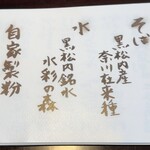 そば
黒松内産
奈川在来種
水
黒松内銘水
水彩の森
自家製粉